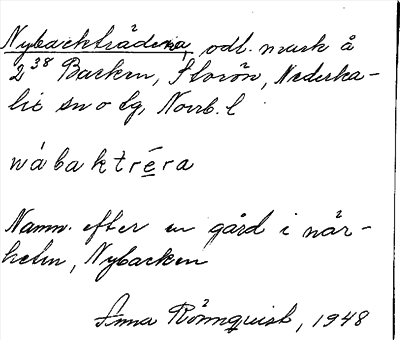 Nybacktråderna, odl. mark å
2³⁸ Backen, Storön, Nederka-
lix sn o tg, Norrb. l
nábaktréra
Namn. efter en gård i när-
heten, Nybacken
Anna Rönnquist, 1948